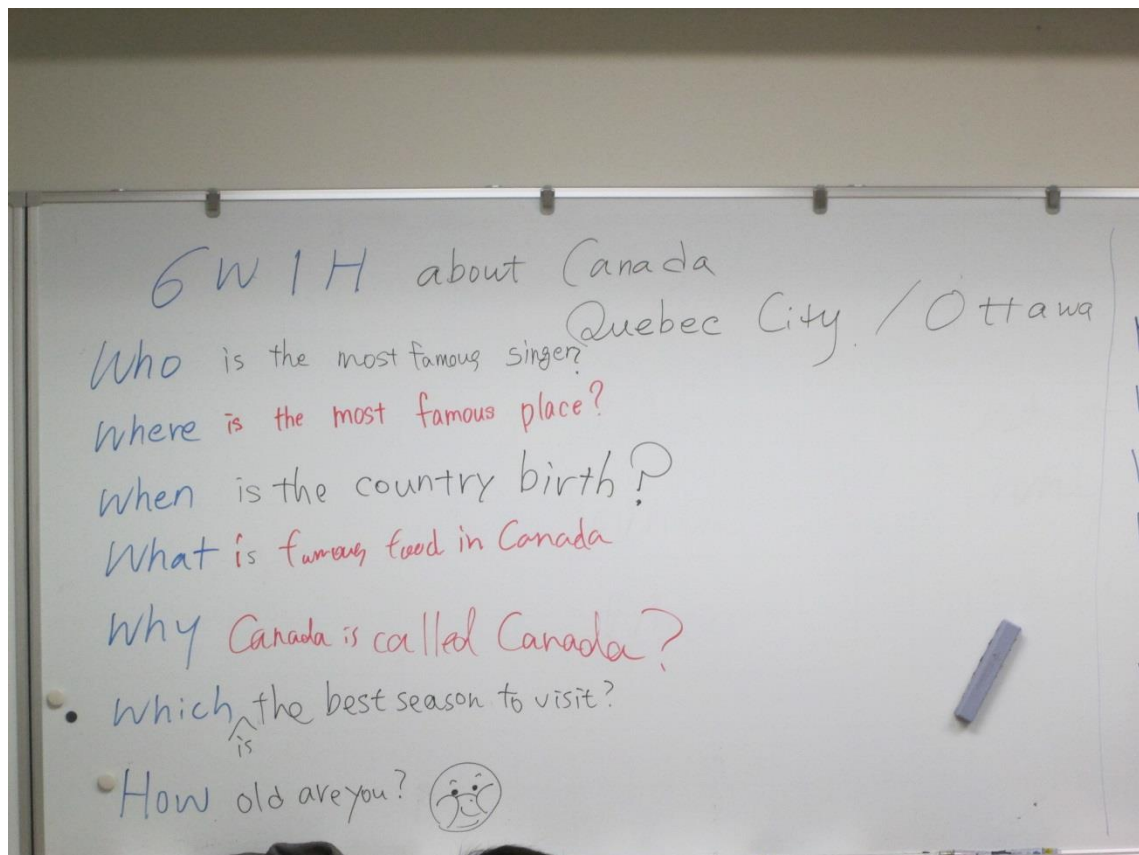 6W1H about Canada
Quebec City / Ottawa
Who is the most famous singer?
Where is the most famous place?
When is the country birth?
What is famous food in Canada
Why Canada is called Canada?
Which is the best season to visit?
How old are you?